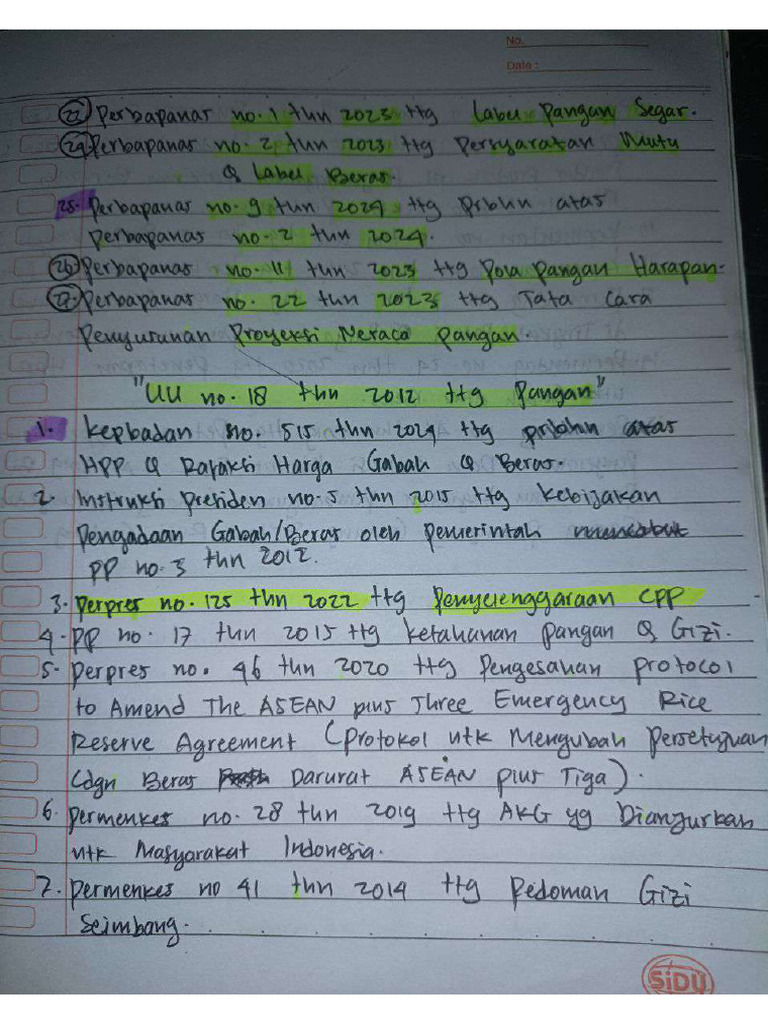 No.
Date :
23 Perbapanas no. 1 thn 2023 ttg Label Pangan Segar.
24 Perbapanas no. 2 thn 2023 ttg Persyaratan Mutu
& Label Beras.
25. Perbapanas no. 9 thn 2024 ttg prbhn atas
perbapanas no. 2 thn 2024.
26 Perbapanas no. 11 thn 2023 ttg Pola Pangan Harapan.
27 Perbapanas no. 22 thn 2023 ttg Tata Cara
Penyusunan Proyeksi Neraca Pangan.
"UU no. 18 thn 2012 ttg Pangan"
1. Kepbadan no. 515 thn 2024 ttg prbhn atas
HPP & Rafaksi Harga Gabah & Beras.
2. Instruksi Presiden no. 5 thn 2015 ttg kebijakan
Pengadaan Gabah/Beras oleh pemerintah mencabut
PP no. 3 thn 2012.
3. Perpres no. 125 thn 2022 ttg Penyelenggaraan CPP
4. PP no. 17 thn 2015 ttg ketahanan pangan & Gizi.
5. Perpres no. 46 thn 2020 ttg Pengesahan protocol
to Amend The ASEAN plus Three Emergency Rice
Reserve Agreement (Protokol utk Mengubah Persetujuan
Cdgn Beras Darurat ASEAN plus Tiga).
6. Permenkes no. 28 thn 2019 ttg AKG yg Dianjurkan
utk Masyarakat Indonesia.
7. Permenkes no 41 thn 2014 ttg Pedoman Gizi
Seimbang.
SiDU